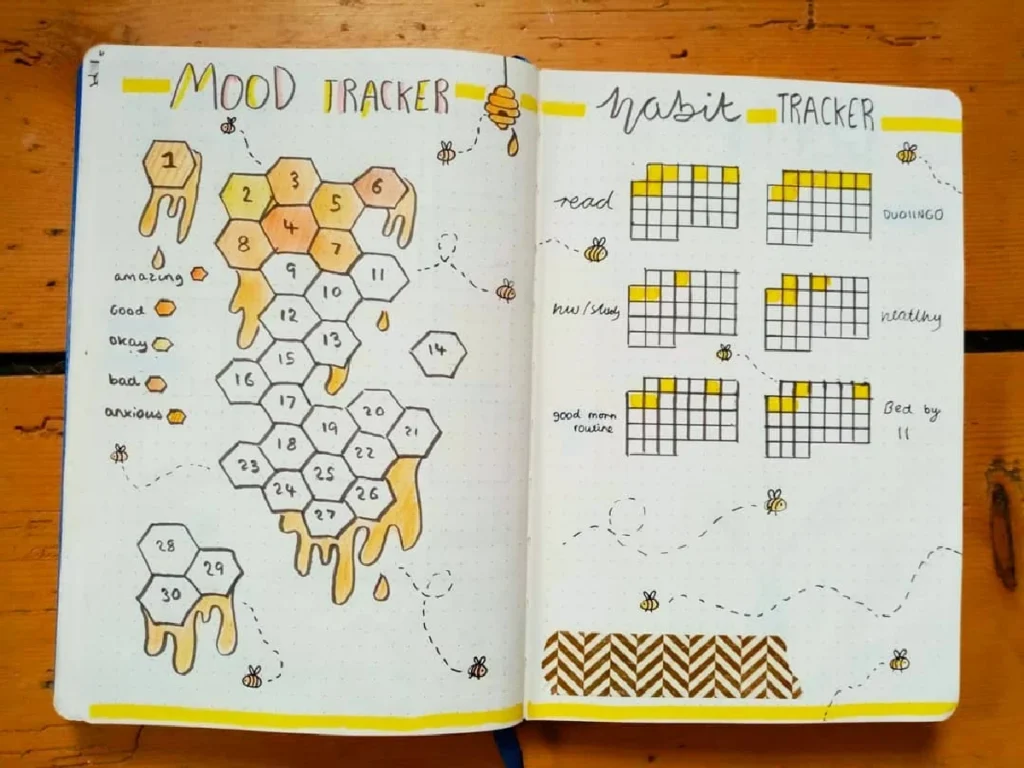 MOOD TRACKER
1
2
3
4
5
6
7
8
9
10
11
12
13
14
15
16
17
18
19
20
21
22
23
24
25
26
27
28
29
30
amazing
Good
okay
bad
anxious
habit TRACKER
read
DUOLINGO
hw/study
healthy
good morn
routine
Bed by
11